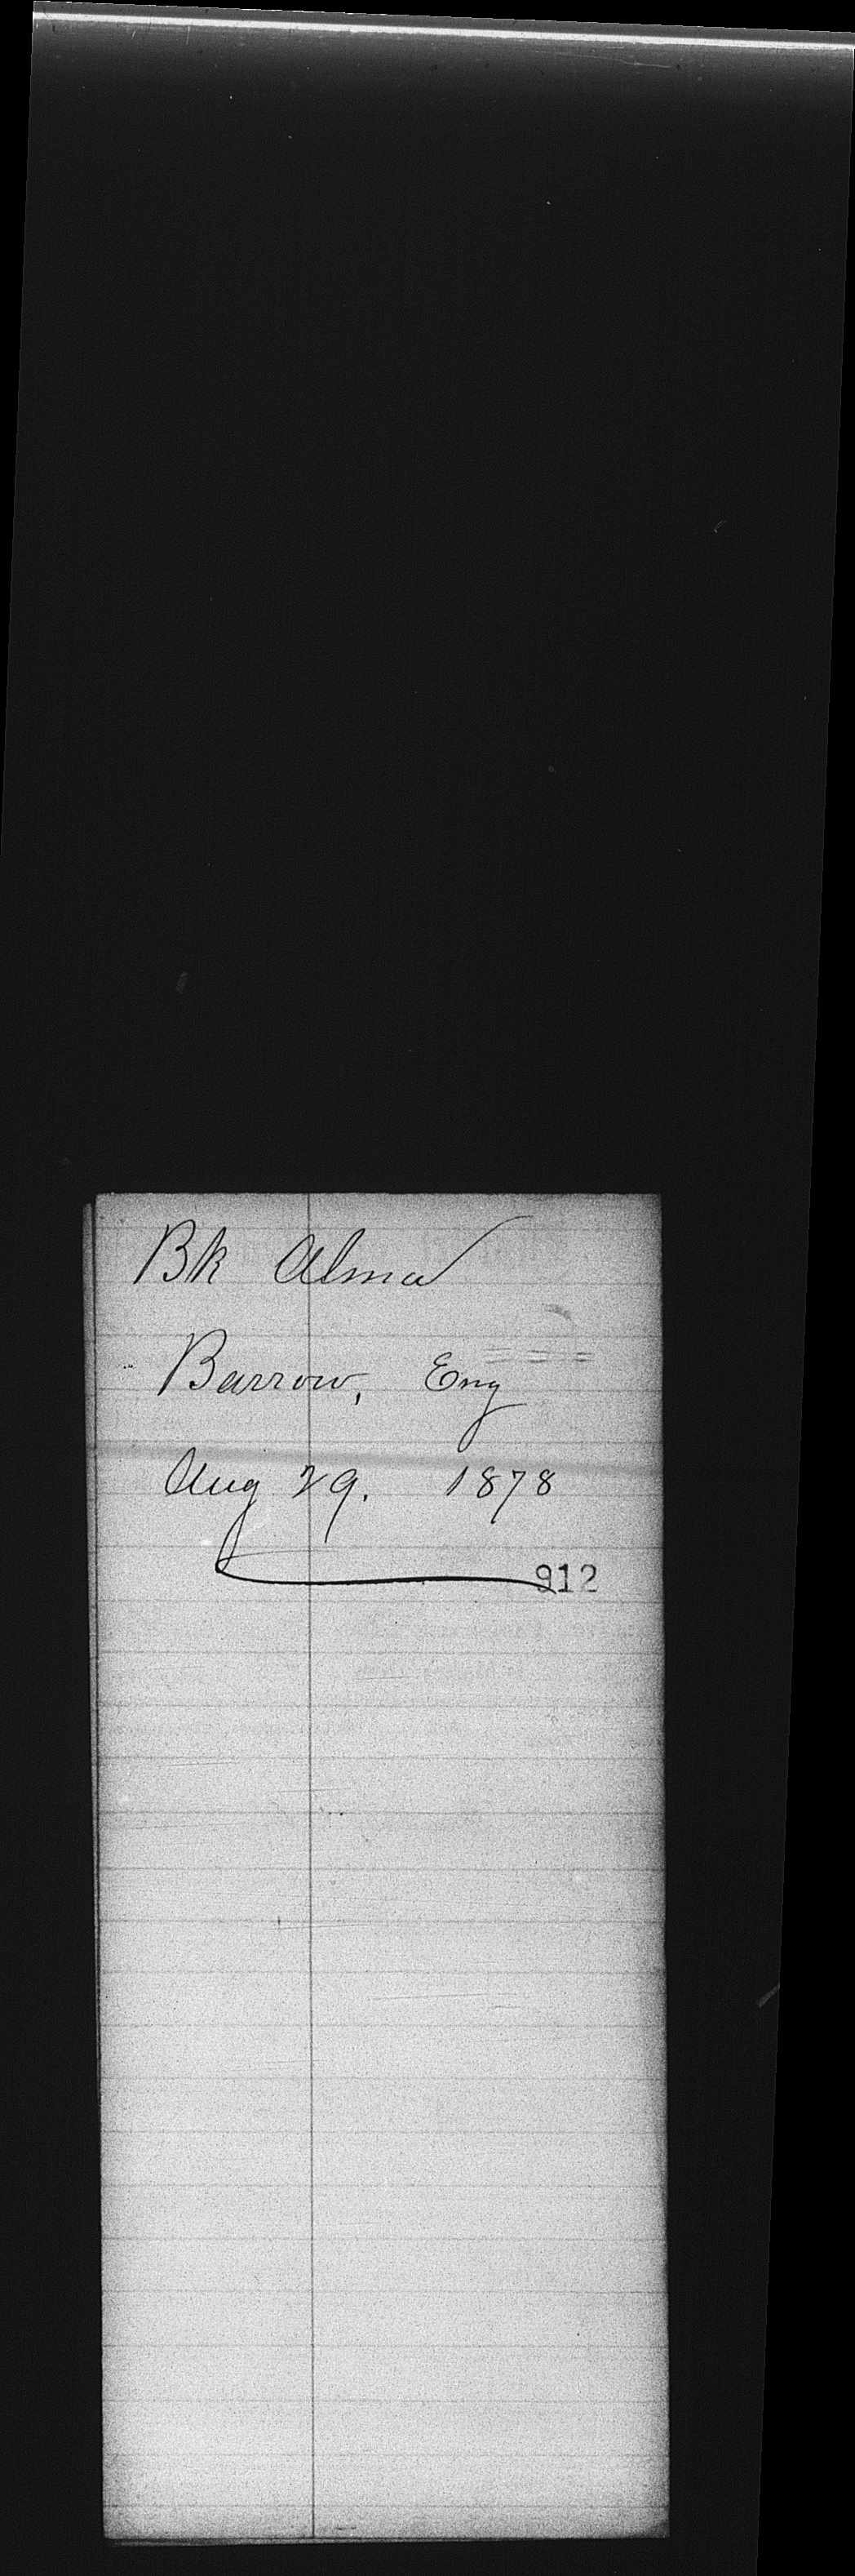 Bk Alma
Barrow, Eng
Aug 29. 1878
912